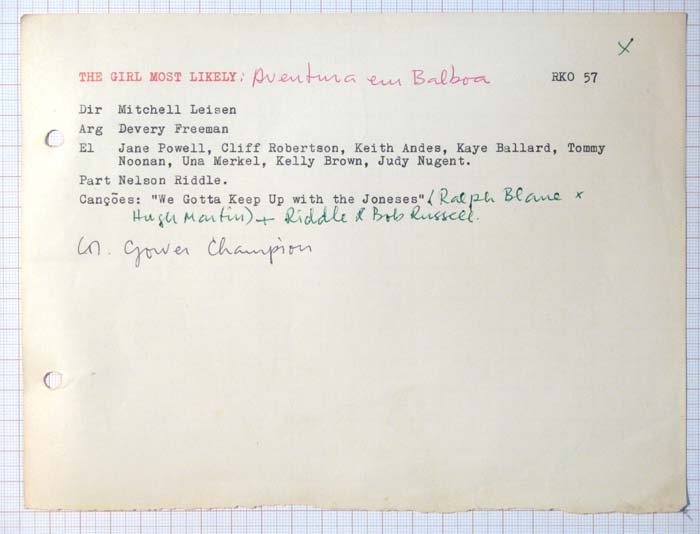 x
THE GIRL MOST LIKELY: Aventura em Balboa RKO 57
Dir Mitchell Leisen
Arg Devery Freeman
El Jane Powell, Cliff Robertson, Keith Andes, Kaye Ballard, Tommy
Noonan, Una Merkel, Kelly Brown, Judy Nugent.
Part Nelson Riddle.
Canções: "We Gotta Keep Up with the Joneses" (Ralph Blane x
Hugh Martin) + Riddle & Bob Russell.
Gower Champion